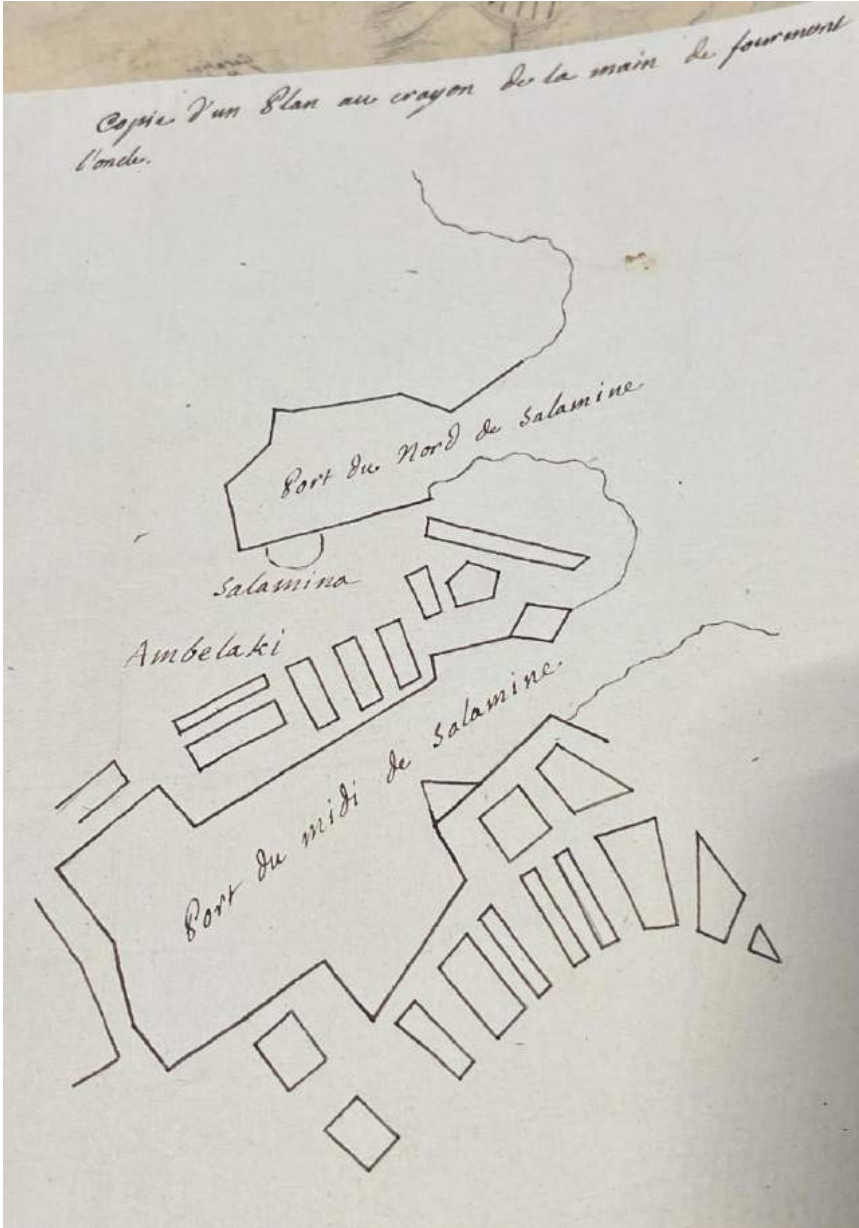 Copie d'un Plan au crayon de la main de fourmont
l'oncle.
Port du Nord de Salamine
Salamina
Ambelaki
Port du midi de Salamine.